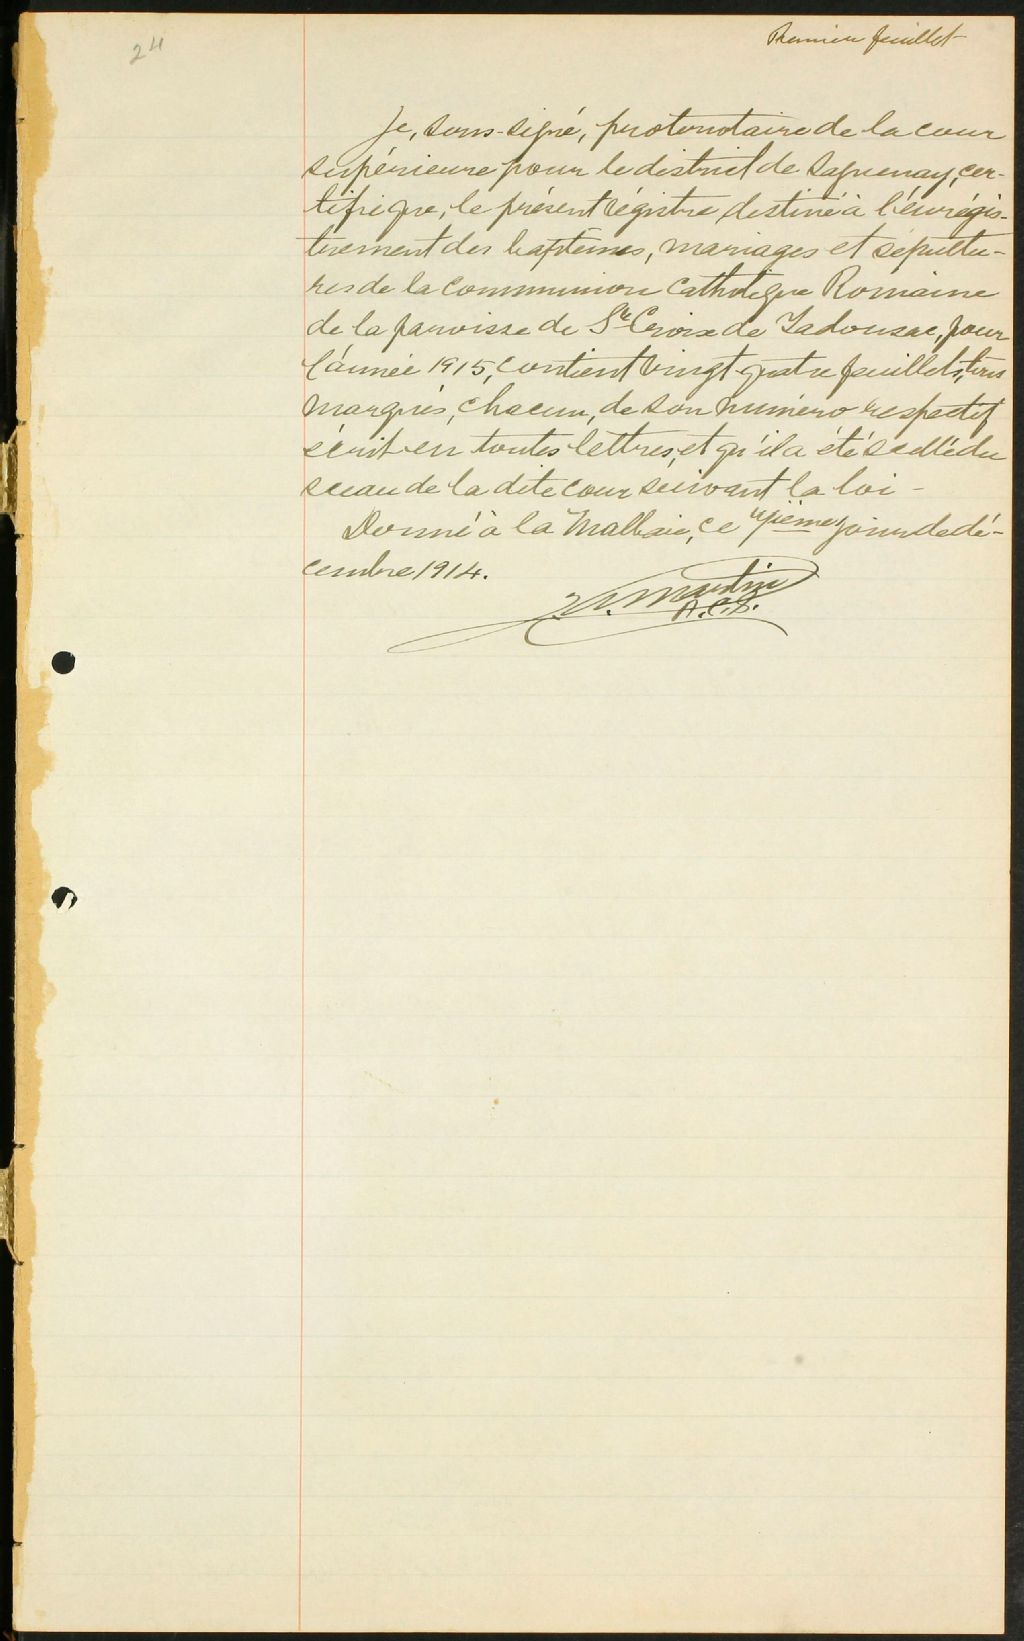 24
Premier feuillet
Je, sous-signé, protonotaire de la cour
supérieure pour le district de Saguenay, cer-
tifie que, le présent régistre destiné à l'enrégis-
trement des baptêmes, mariages et sépultu-
res de la communion Catholique Romaine
de la paroisse de Ste Croix de Tadousac, pour
l'année 1915, contient vingt-quatre feuillets, tous
marqués, chacun, de son numéro respectif
écrit en toutes lettres, et qu'il a été scellé du
sceau de la dite cour suivant la loi -
Donné à la Malbaie, ce jour de dé-
cembre 1914.
Martin